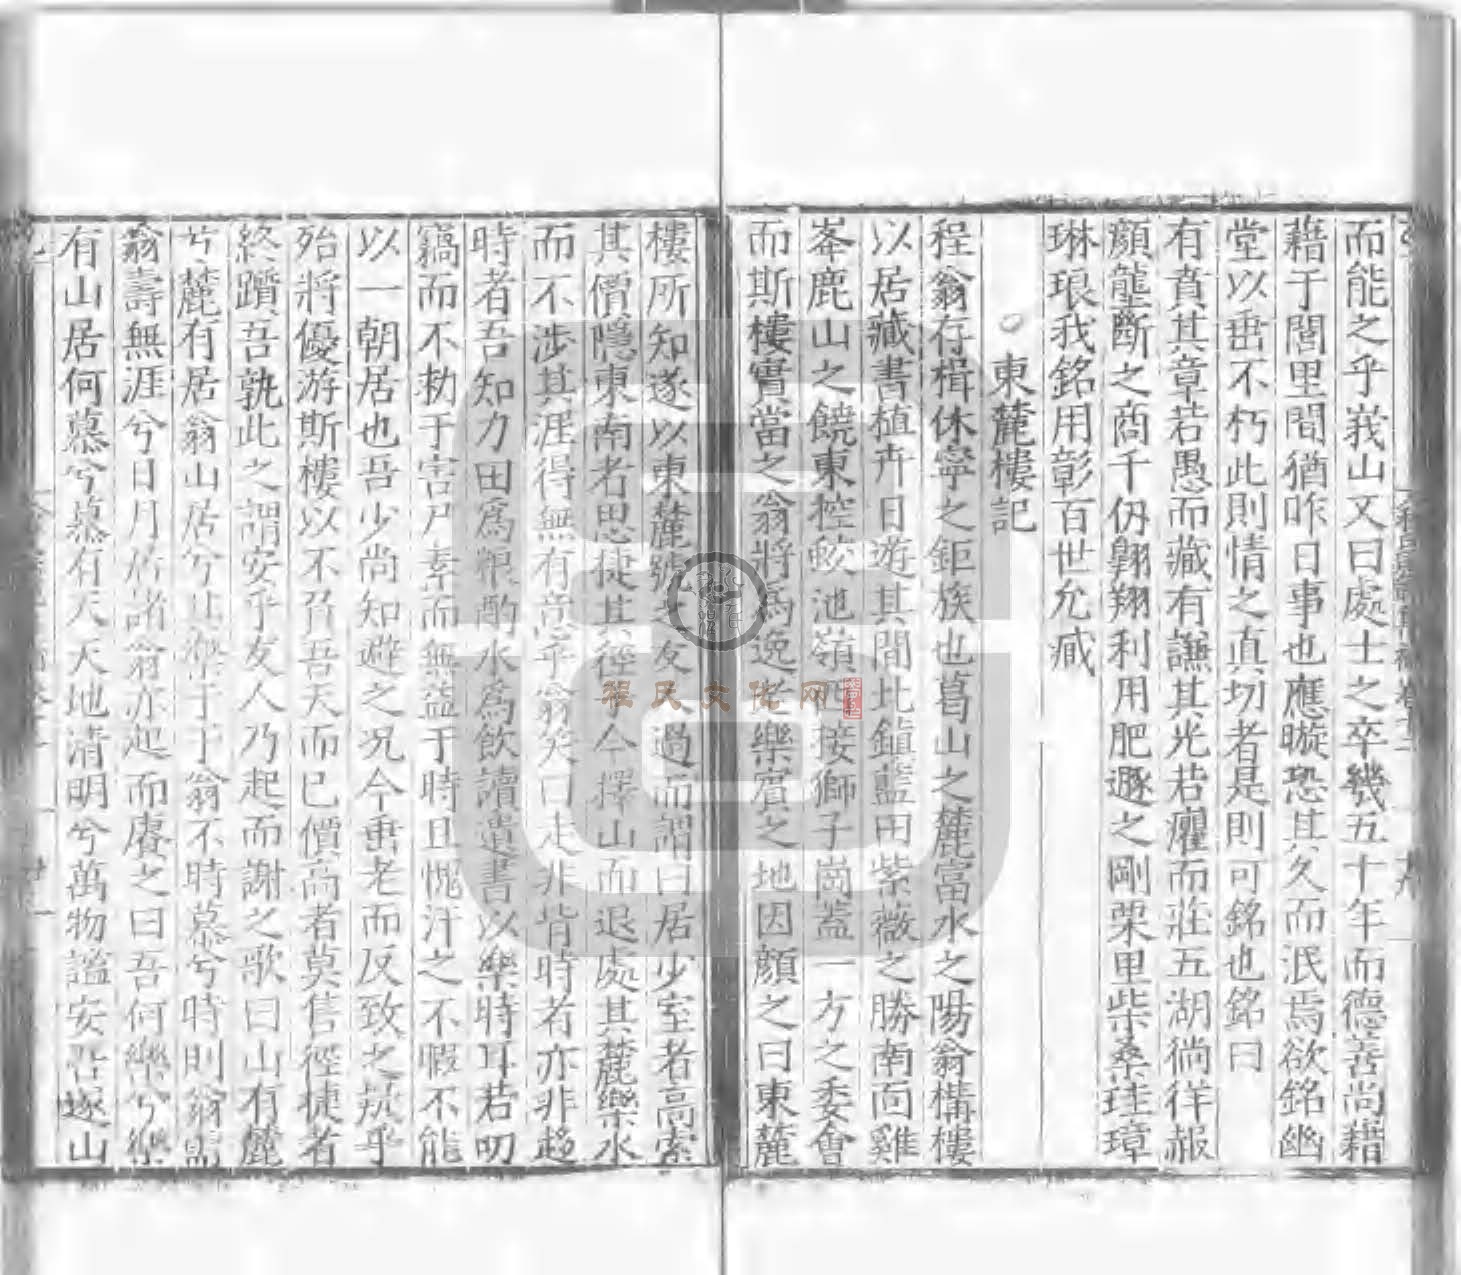 而能之乎峩山又曰處士之卒幾五十年而德善尚藉
藉于閭里間猶昨日事也應暶恐其久而泯焉欲銘幽
堂以垂不朽此則情之真切者是則可銘也銘曰
有賁其章若愚而藏有讜其光若癯而莊五湖徜徉赧
顔壟斷之商千仞翱翔利用肥遯之剛栗里柴桑珪璋
琳琅我銘用彰百世允臧
東麓樓記
程翁存楫休寧之鉅族也葛山之麓富水之陽翁構樓
以居藏書植卉日遊其間北鎮藍田紫薇之勝南面雞
峯鹿山之饒東控蛟池嶺西接獅子崗蓋一方之委會
而斯樓實當之翁將爲逸老樂賓之地因顔之曰東麓
樓所知遂以東麓號之友人過而謂曰居少室者高索
其價隱東南者思捷其徑乎今擇山而退處其麓樂水
而不涉其涯得無有意乎翁笑曰走非背時者亦非趋
時者吾知力田爲粮酌水爲飲讀遺書以樂時耳若叨
竊而不勑于害尸素而無益于時且愧汗之不暇不能
以一朝居也吾少尚知避之况今垂老而反致之兢乎
殆將優游斯樓以不負吾天而已價高者莫售徑捷者
終躓吾孰此之謂安乎友人乃起而謝之歌曰山有麓
兮麓有居翁山居兮兮其樂于于翁不時慕兮時則翁
翁壽無涯兮日月居諸翁亦起而賡之曰吾何樂兮樂
有山居何慕兮慕有天天地清明兮萬物謐安吾遂山
程民文化网